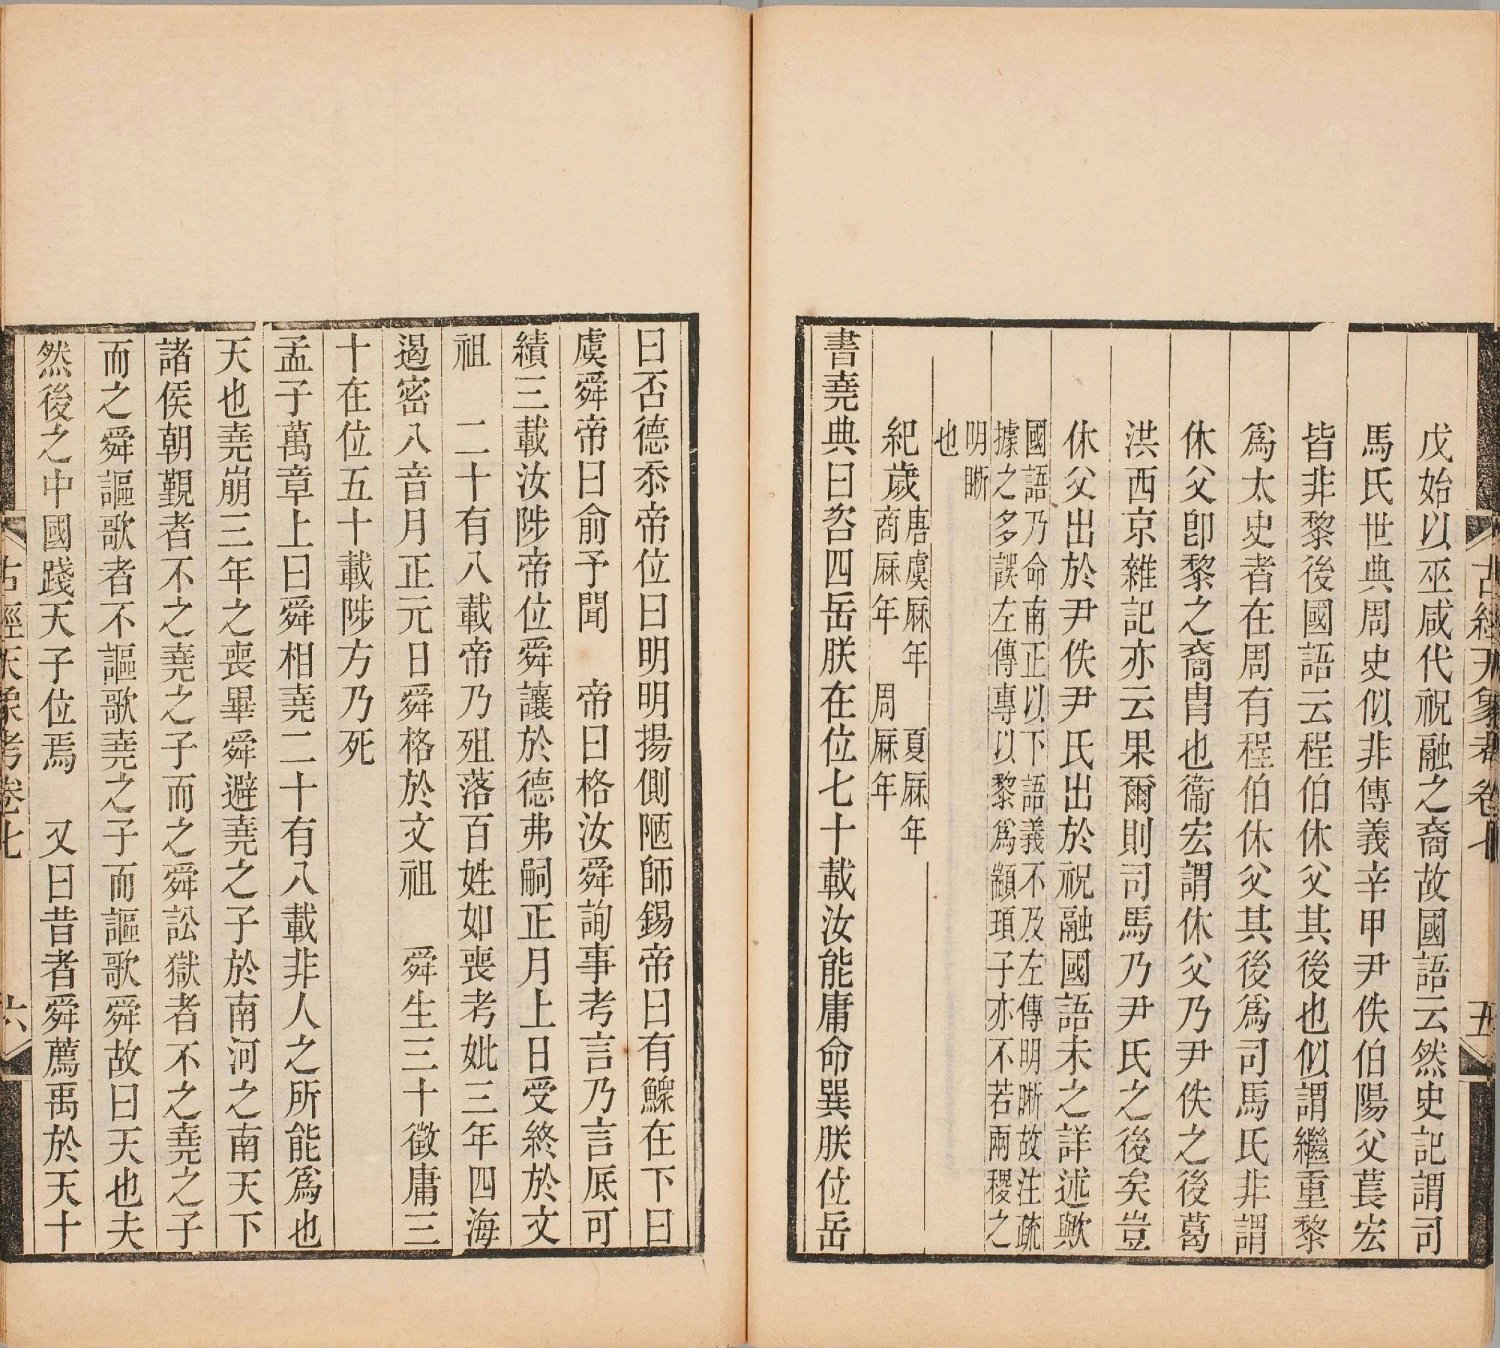 古經天象考卷七 五
戊始以巫咸代祝融之裔故國語云然史記謂司
馬氏世典周史似非傳義辛甲尹佚伯陽父萇宏
皆非黎後國語云程伯休父其後也似謂繼重黎
爲太史者在周有程伯休父其後爲司馬氏非謂
休父卽黎之裔胄也衞宏謂休父乃尹佚之後葛
洪西京雜記亦云果爾則司馬乃尹氏之後矣豈
休父出於尹佚尹氏出於祝融國語未之詳述歟
國語乃命南正以下語義不及左傳明晰故注疏
據之多誤左傳專以黎爲顓頊子亦不若兩稷之
明晰
也
紀歲唐虞厤年 夏厤年
商厤年 周厤年
書堯典曰咨四岳朕在位七十載汝能庸命巽朕位岳
曰否德忝帝位曰明明揚側陋師錫帝曰有鰥在下曰
虞舜帝曰俞予聞 帝曰格汝舜詢事考言乃言厎可
績三載汝陟帝位舜讓於德弗嗣正月上日受終於文
祖 二十有八載帝乃殂落百姓如喪考妣三年四海
遏密八音月正元日舜格於文祖 舜生三十徵庸三
十在位五十載陟方乃死
孟子萬章上曰舜相堯二十有八載非人之所能爲也
天也堯崩三年之喪畢舜避堯之子於南河之南天下
諸侯朝覲者不之堯之子而之舜訟獄者不之堯之子
而之舜謳歌者不謳歌堯之子而謳歌舜故曰天也夫
然後之中國踐天子位焉 又曰昔者舜薦禹於天十
古經天象考卷七 六